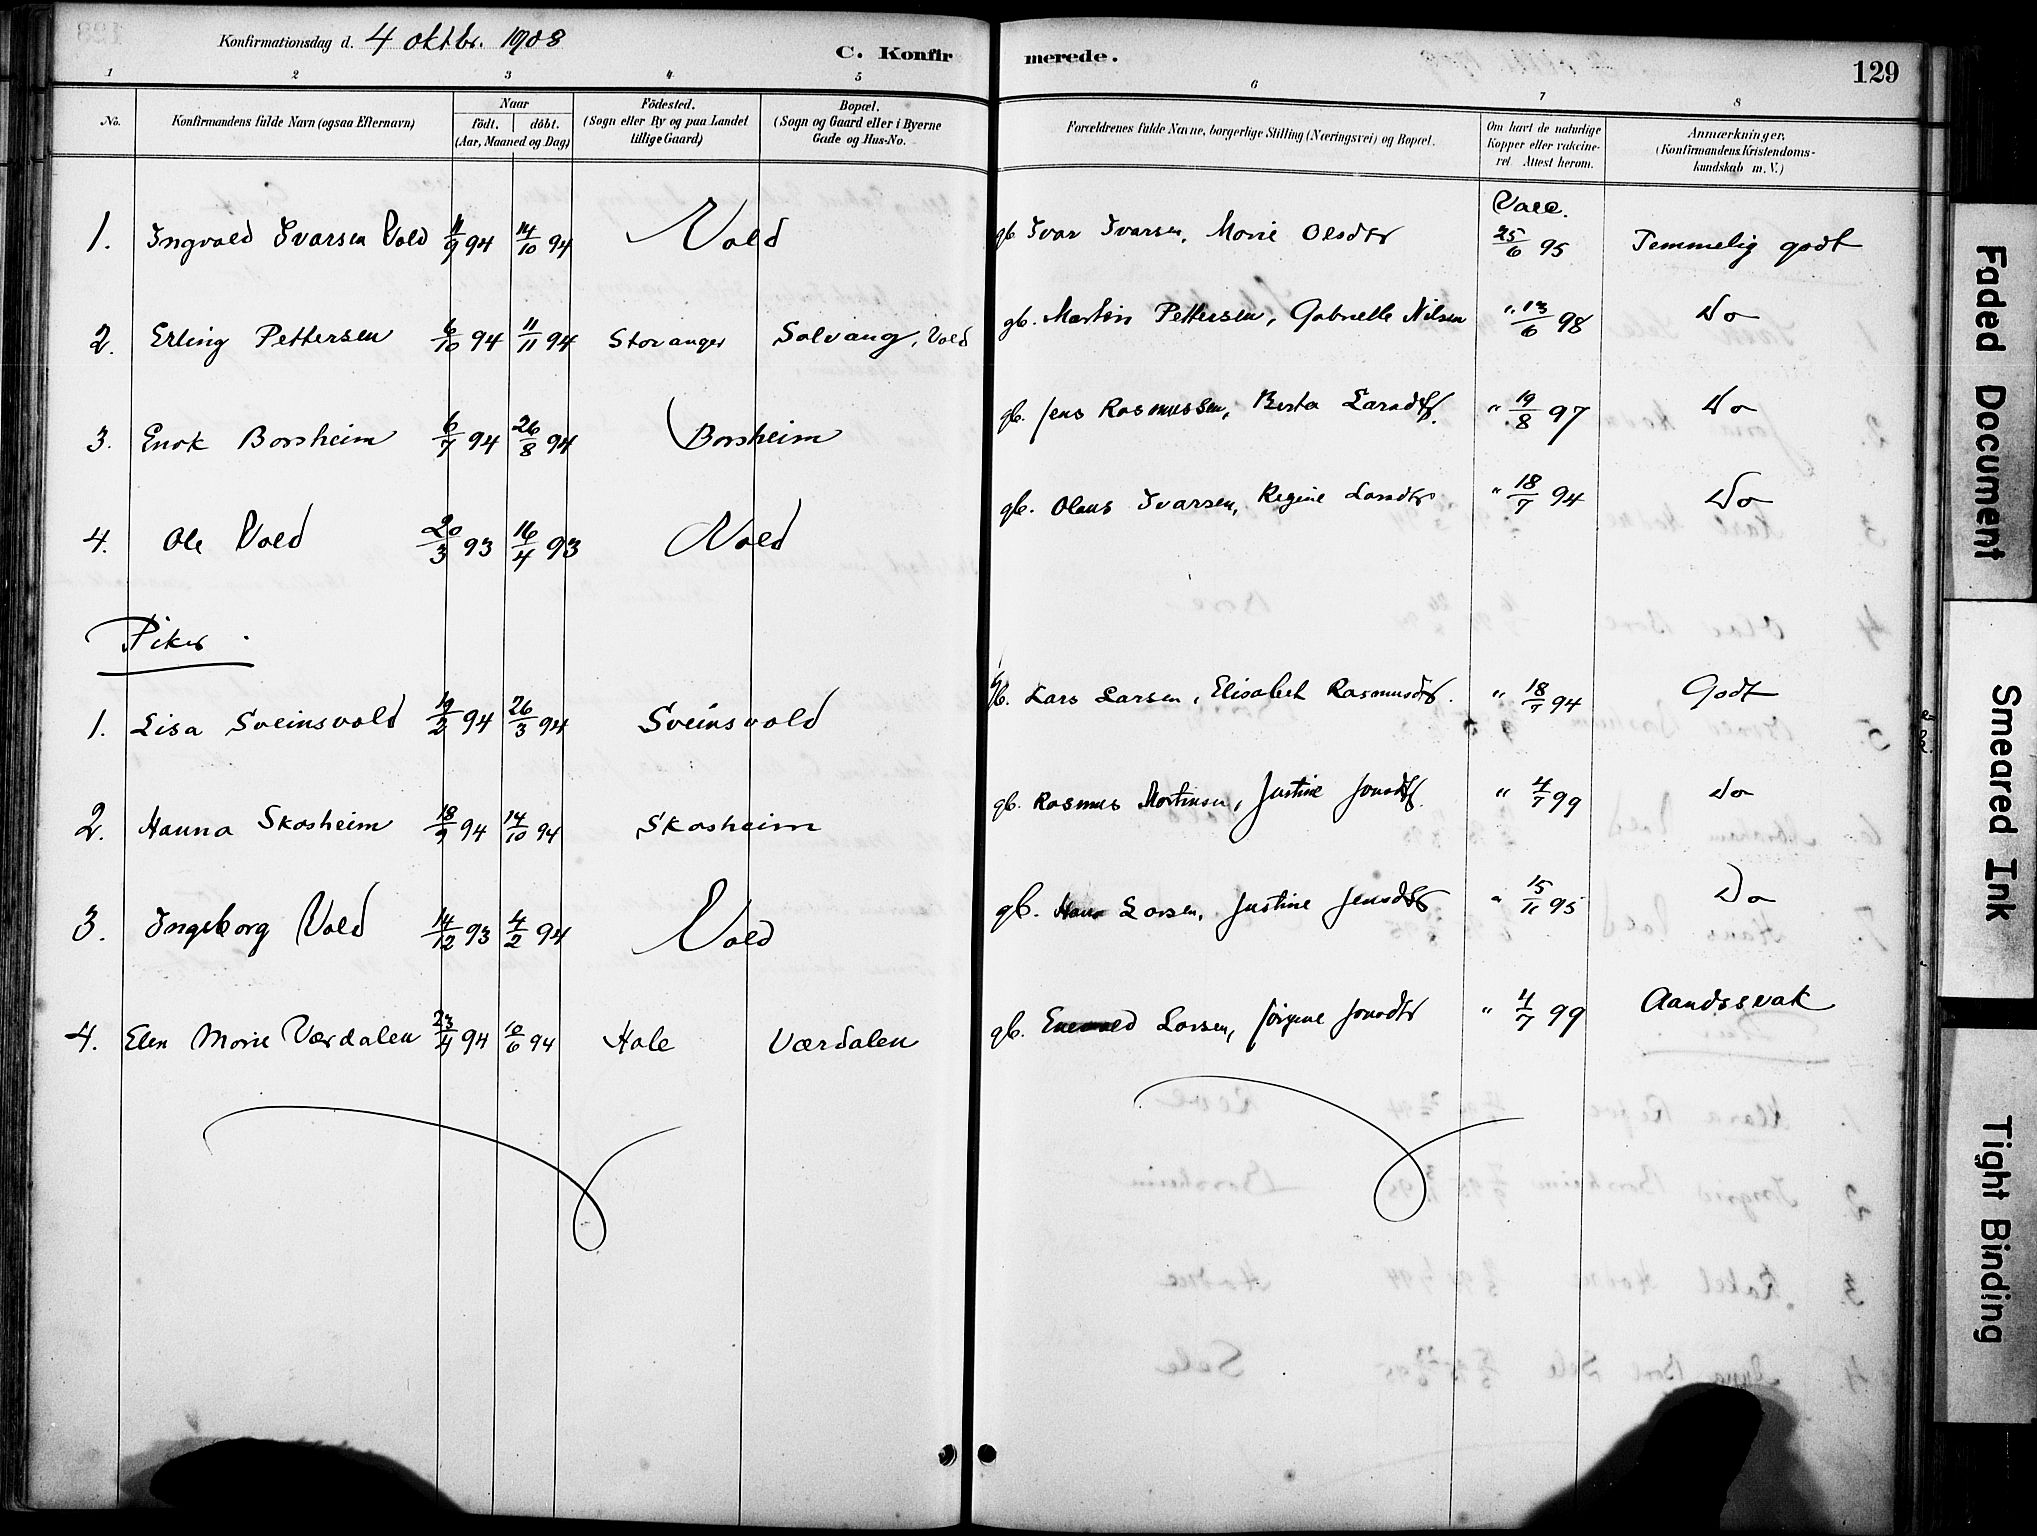 Konfirmationsdag d. 4 oktbr. 1908 C. Konfirmerede. 129
1 2 3 4 5 6 7 8
No. Konfirmandens fulde Navn (ogsaa Efternavn) Naar födt. döbt. (Aar, Maaned og Dag) Födested. (Sogn eller By og paa Landet tillige Gaard) Bopæl. (Sogn og Gaard eller i Byerne Gade og Hus-No. Forældrenes fulde Navne, borgerlige Stilling (Næringsvei) og Bopæl. Om havt de naturlige Kopper eller vakcineret Attest herom. Anmærkninger. (Konfirmandens Kristendomskundskab m. V.)
1. Ingvald Ivarsen Vold 11/9 94 14/10 94 Vold gb Ivar Ivarsen, Marie Olsdtr Vacc. 25/6 95 Temmelig godt
2. Erling Pettersen 6/10 94 11/11 94 Stavanger Solvang, Vold gb. Martin Pettersen, Gabrielle Nilsen " 13/6 98 Do
3. Enok Borsheim 6/7 94 26/8 94 Borsheim gb. Jens Rasmussen, Berta Larsdtr. " 19/8 97 Do
4. Ole Vold 20/3 93 16/4 93 Vold gb. Olaus Ivarsen, Regine Larsdtr " 18/7 94 Do
Piker.
1. Lisa Sveinsvold 19/2 94 26/3 94 Sveinsvold gb. Lars Larsen, Elisabet Rasmusdtr. " 18/7 94 Godt
2. Hanna Skasheim 18/9 94 14/10 94 Skasheim gb. Rasmus Mortensen, Justine Jonsdtr. " 4/7 99 do
3. Ingeborg Vold 14/12 93 4/2 94 Vold gb. Hans Larsen, Justine Jensdtr " 15/11 95 Do
4. Elen Marie Værdalen 23/4 94 10/6 94 Hole Værdalen gb. Enevald Larsen, Jørgine Jonsdtr " 4/7 99 Aandssvak
Faded Document
Smeared Ink
Tight Binding